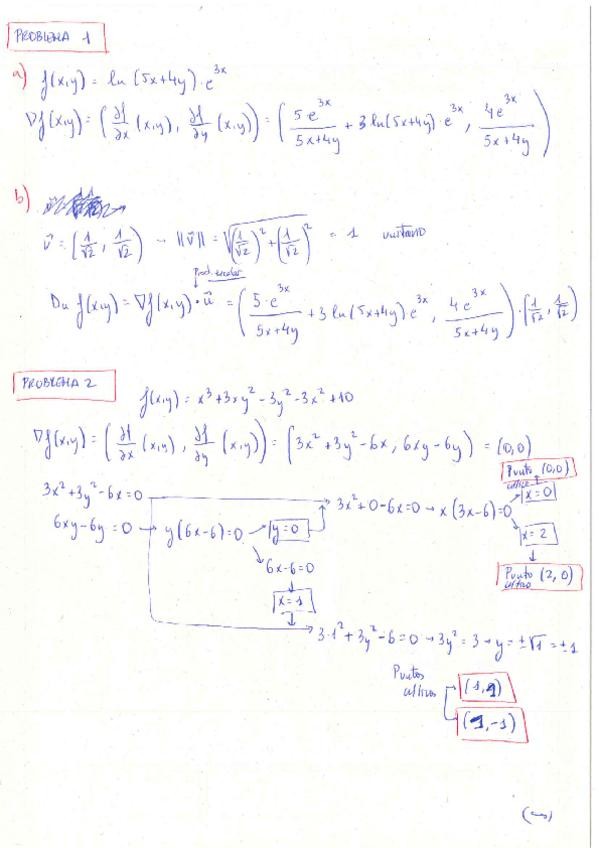 PROBLEMA 1
a) f(x,y) = ln (5x+4y) · e^{3x}
∇f(x,y) = (∂f/∂x (x,y), ∂f/∂y (x,y)) = (5·e^{3x}/(5x+4y) + 3 ln(5x+4y)·e^{3x}, 4e^{3x}/(5x+4y))
b)
v⃗ = (1/√2, 1/√2) → ||v⃗|| = √((1/√2)² + (1/√2)²) = 1 unitario
Prod. escalar
Du f(x,y) = ∇f(x,y) · u⃗ = (5·e^{3x}/(5x+4y) + 3 ln(5x+4y)·e^{3x}, 4e^{3x}/(5x+4y)) · (1/√2, 1/√2)
PROBLEMA 2
f(x,y) = x³+3xy²-3y²-3x²+10
∇f(x,y) = (∂f/∂x (x,y), ∂f/∂y (x,y)) = (3x²+3y²-6x, 6xy-6y) = (0,0)
Punto (0,0)
crítico
3x²+3y²-6x=0
3x²+0-6x=0 → x(3x-6)=0
x=0
6xy-6y=0 → y(6x-6)=0
y=0
x=2
6x-6=0
Punto (2,0)
crítico
x=1
3·1²+3y²-6=0 → 3y²=3 → y=±√1=±1
Puntos
críticos
(1,1)
(1,-1)